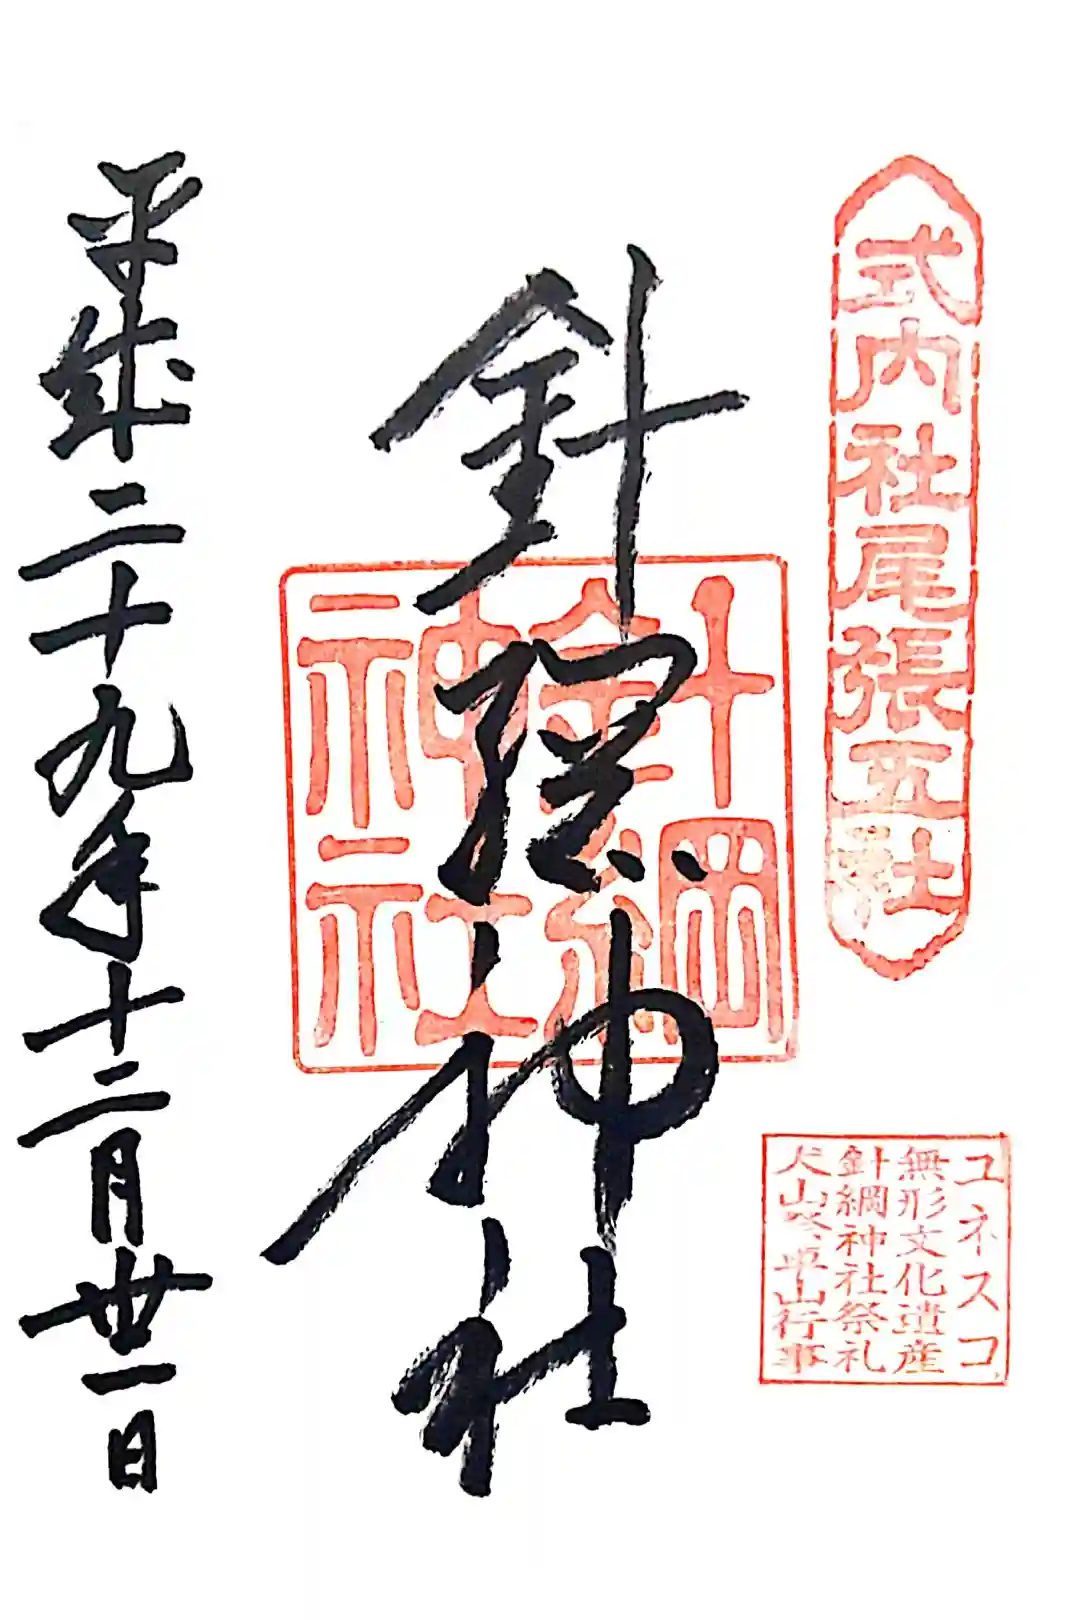 式内社尾張五社
ユネスコ
無形文化遺産
針綱神社祭礼
犬山
山行事
針綱神社
針綱
神社
平成二十九年十二月丗一日